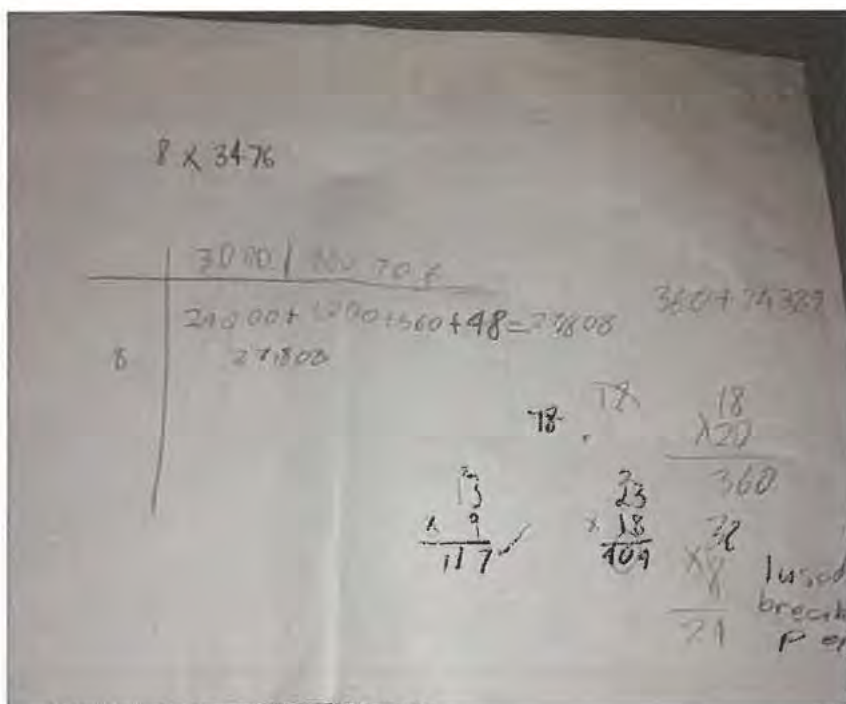 8 x 3476
3000 | 400 70 6
24000+3200+560+48=27808
8 27,808
360+24389
78
18
x20
360
13
x 9
117 ✓
23
x 18
404
x8
I used
break